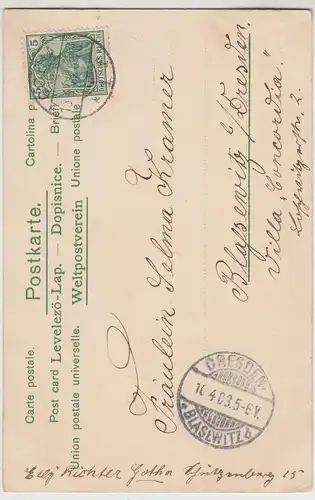 Carte postale. Postkarte. Cartolina p
Post card Levelező-Lap. — Dopisnice. — Brief
Union postale universelle. Weltpostverein Unione postale
5 5
DEUTSCHES REICH
Fräulein Selma Kramer
Blasewitz b/Dresden.
Villa „Concordia".
2.
DRESDEN-
16.4.03.5-6V.
BLASEWITZ
Richter Gotha Schützenberg 15